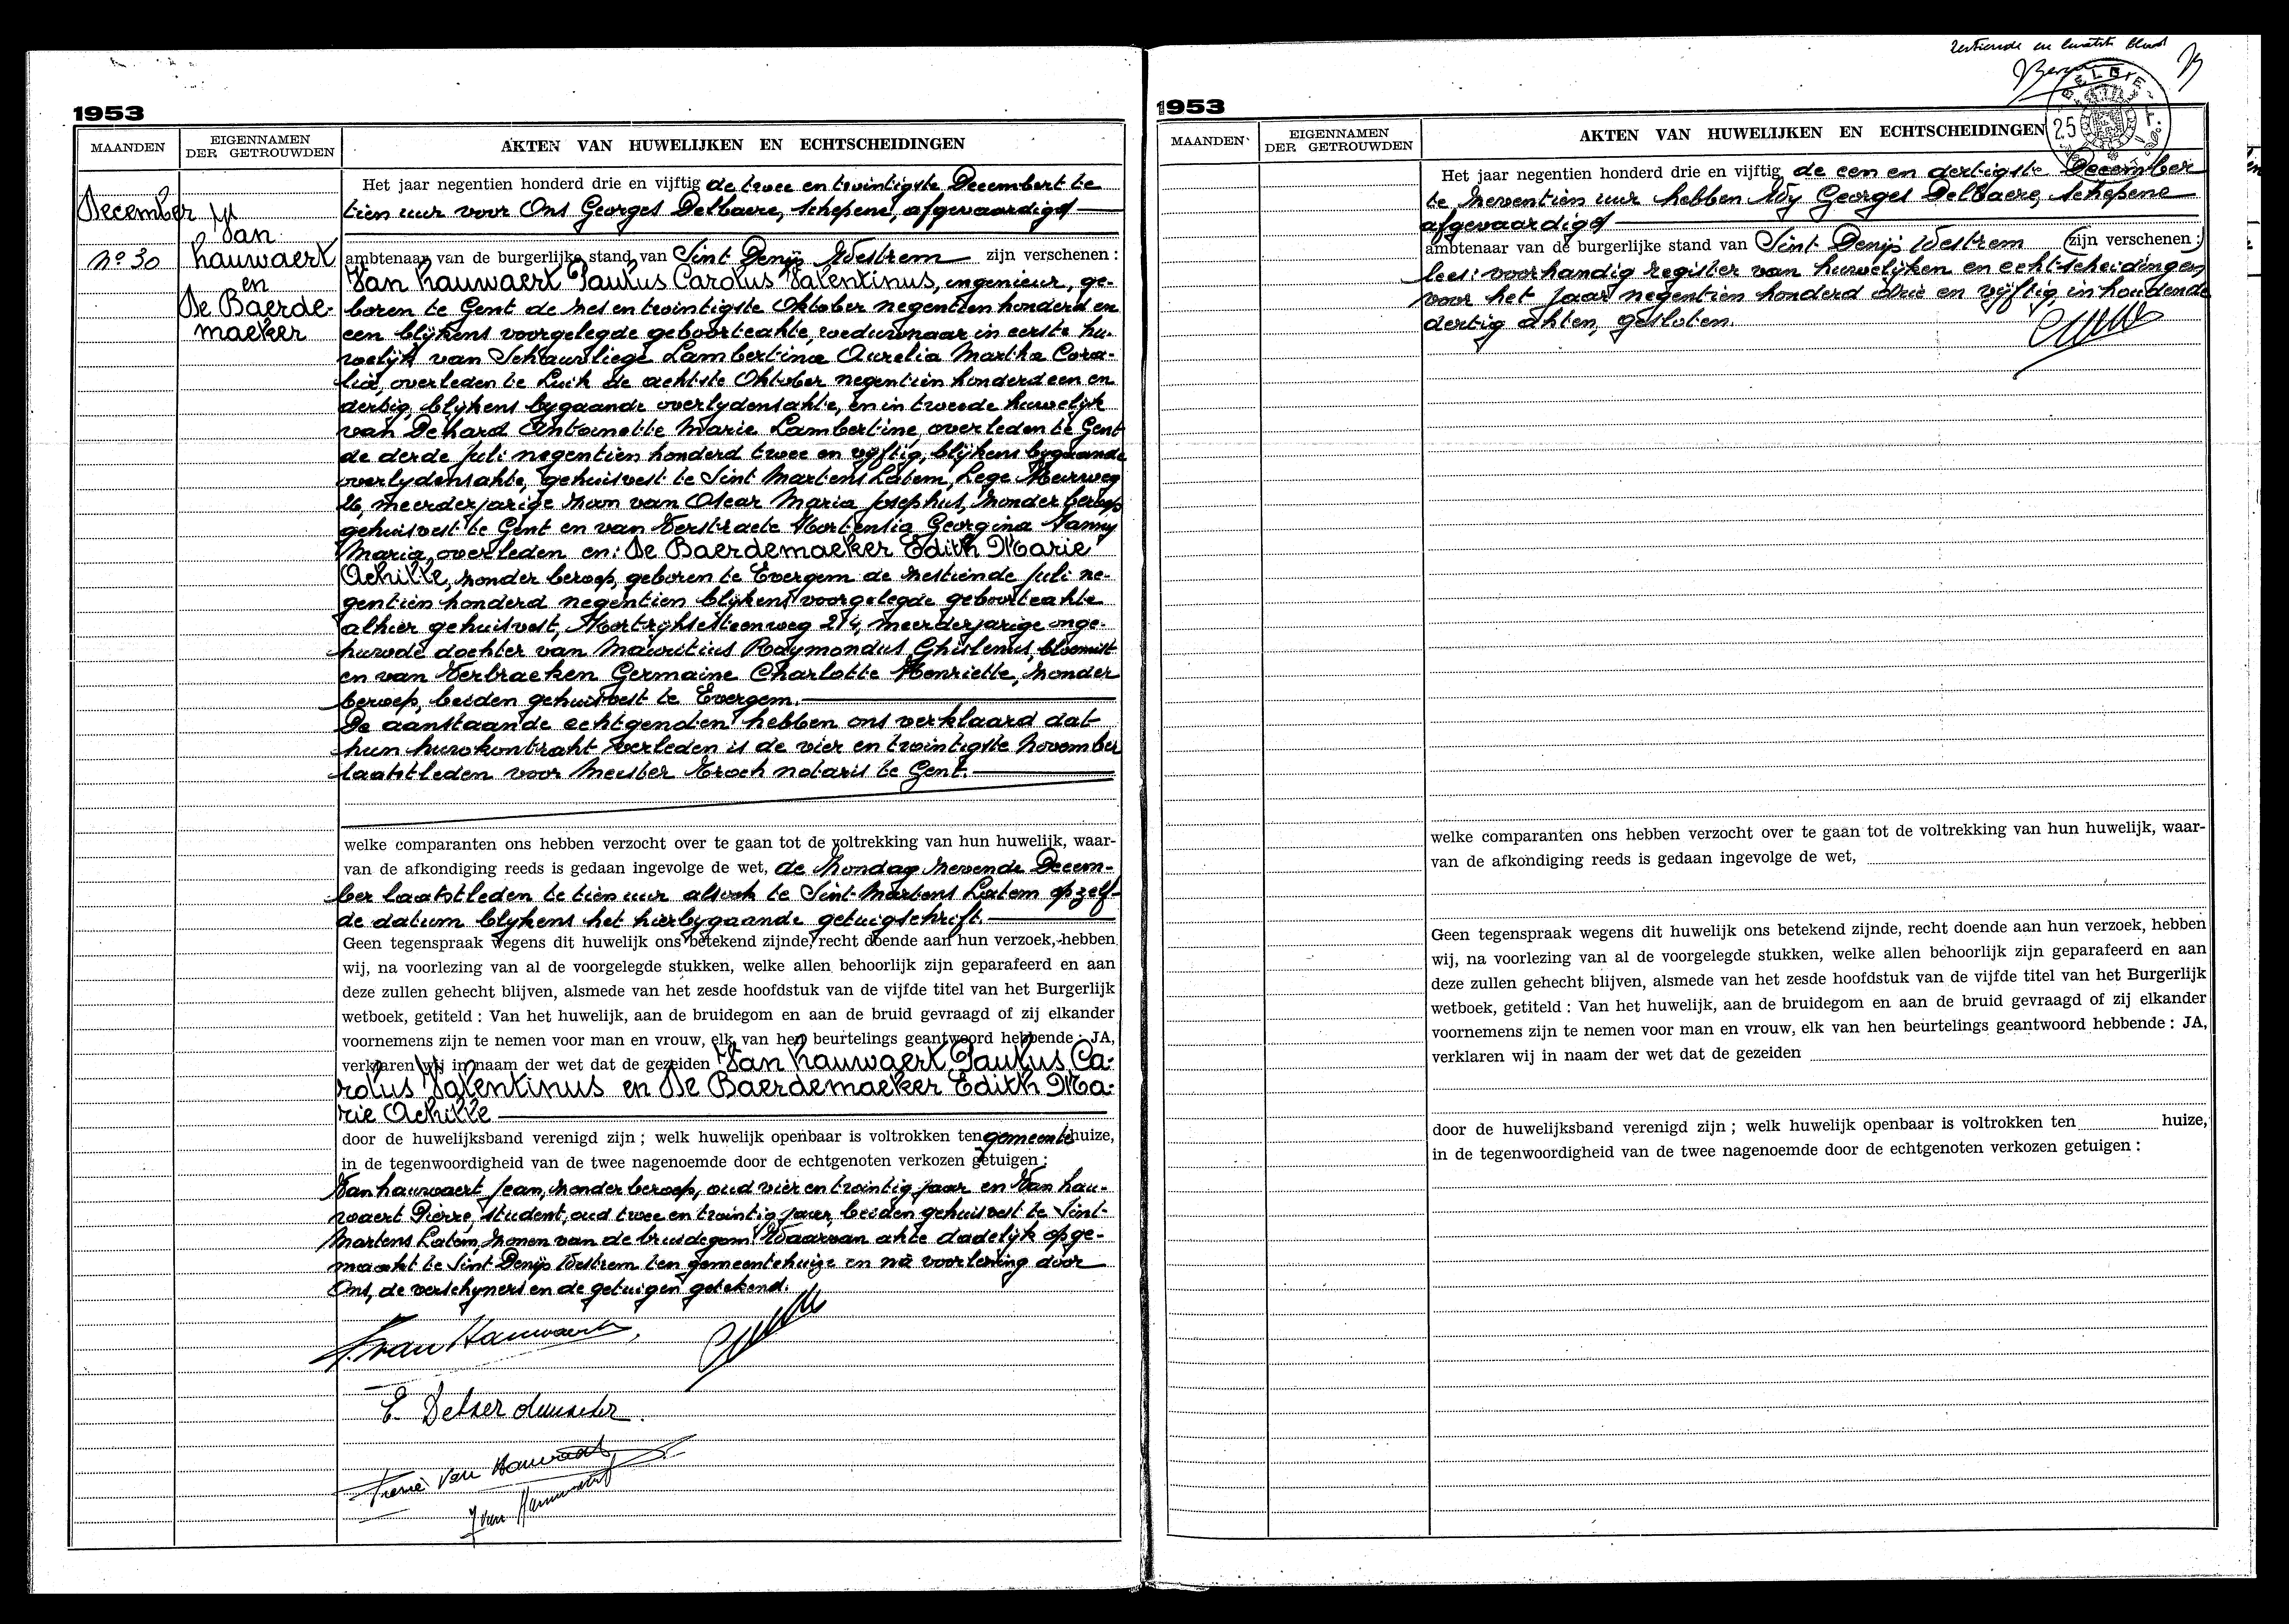 1953
MAANDEN
EIGENNAMEN
DER GETROUWDEN
AKTEN VAN HUWELIJKEN EN ECHTSCHEIDINGEN
December
Van
hauwaert
en
De Baerde-
maeker
Nº 30
Het jaar negentien honderd drie en vijftig de twee en twintigste Decembert te
tien uur voor Ons Georges Delbaere, schepene, afgevaardigd
ambtenaar van de burgerlijke stand van Sint Denijs Westrem zijn verschenen :
Van hauwaert Paulus Carolus Valentinus, ingenieur, ge-
boren te Gent de zes en twintigste Oktober negentien honderd en
een blijkens voorgelegde geboorteakte, weduwnaar in eerste hu-
welijk van Schauvliege Lambertina Aurelia Martha Cora-
lia, overleden te Luik de achtste Oktober negentien honderd een en
dertig, blijkens bygaande overlydensakte, en in tweede huwelyk
van Dehard Antoinette Marie Lambertine, overleden te Gent
de derde Juli negentien honderd twee en vyftig, blijkens bygaande
overlydensakte, gehuisvest te Sint Martens Latem, Lege Meirweg
26, meerderjarige zoon van Oscar Maria Josephus, zonder beroep
gehuisvest te Gent en van Verstraete Hortensia Georgina Nanny
Maria, overleden en: De Baerdemaeker Edith Marie
Achille, zonder beroep, geboren te Evergem de zestiende Juli ne-
gentien honderd negentien blijkens voorgelegde geboorteakte
alhier gehuisvest, Kortrijksesteenweg 214, meerderjarige onge-
huwde dochter van Mauritius Raymondus Ghislenus, bloemist
en van Verbraeken Germaine Charlotte Henriette, zonder
beroep, beiden gehuisvest te Evergem.
De aanstaande echtgenden hebben ons verklaard dat
hun huwkontrakt verleden is de vier en twintigste November
laatstleden voor Meester Kroch notaris te Gent.
welke comparanten ons hebben verzocht over te gaan tot de voltrekking van hun huwelijk, waar-
van de afkondiging reeds is gedaan ingevolge de wet, de Zondag zevende Decem-
ber laatstleden te tien uur alsook te Sint-Martens Latem op zelf-
de datum blykens het hierbygaande getuigschrift.
Geen tegenspraak wegens dit huwelijk ons betekend zijnde, recht doende aan hun verzoek, hebben
wij, na voorlezing van al de voorgelegde stukken, welke allen behoorlijk zijn geparafeerd en aan
deze zullen gehecht blijven, alsmede van het zesde hoofdstuk van de vijfde titel van het Burgerlijk
wetboek, getiteld : Van het huwelijk, aan de bruidegom en aan de bruid gevraagd of zij elkander
voornemens zijn te nemen voor man en vrouw, elk van hen beurtelings geantwoord hebbende : JA,
verklaren wij in naam der wet dat de gezeiden Van hauwaert Paulus Ca-
rolus Valentinus en De Baerdemaeker Edith Ma-
rie Achille
door de huwelijksband verenigd zijn ; welk huwelijk openbaar is voltrokken ten gemeentehuize,
in de tegenwoordigheid van de twee nagenoemde door de echtgenoten verkozen getuigen :
Van hauwaert Jean, zonder beroep, oud vier en twintig jaar en Van hau-
waert Pierre, student, oud twee en twintig jaar, beiden gehuisvest te Sint-
Martens Latem, zonen van de bruidegom. Waarvan akte dadelyk opge-
maakt te Sint Denijs Westrem ten gemeentehuize en na voorlezing door
Ons, de verschyners en de getuigen getekend.
van Hauwaert
Pierre Van Hauwaert
J van Hauwaert
1953
MAANDEN
EIGENNAMEN
DER GETROUWDEN
AKTEN VAN HUWELIJKEN EN ECHTSCHEIDINGEN
Zestiende en laatste blad
BELGIE
25 F.
Het jaar negentien honderd drie en vijftig de een en dertigste December
te zeventien uur hebben Wy Georges Delbaere, schepene
afgevaardigd
ambtenaar van de burgerlijke stand van Sint Denijs Westrem (zijn verschenen :)
lees: voorhandig register van huwelyken en echtscheidingen
voor het jaar negentien honderd drie en vyftig, inhoudende
dertig akten, gesloten.
welke comparanten ons hebben verzocht over te gaan tot de voltrekking van hun huwelijk, waar-
van de afkondiging reeds is gedaan ingevolge de wet,
Geen tegenspraak wegens dit huwelijk ons betekend zijnde, recht doende aan hun verzoek, hebben
wij, na voorlezing van al de voorgelegde stukken, welke allen behoorlijk zijn geparafeerd en aan
deze zullen gehecht blijven, alsmede van het zesde hoofdstuk van de vijfde titel van het Burgerlijk
wetboek, getiteld : Van het huwelijk, aan de bruidegom en aan de bruid gevraagd of zij elkander
voornemens zijn te nemen voor man en vrouw, elk van hen beurtelings geantwoord hebbende : JA,
verklaren wij in naam der wet dat de gezeiden
door de huwelijksband verenigd zijn ; welk huwelijk openbaar is voltrokken ten huize,
in de tegenwoordigheid van de twee nagenoemde door de echtgenoten verkozen getuigen :